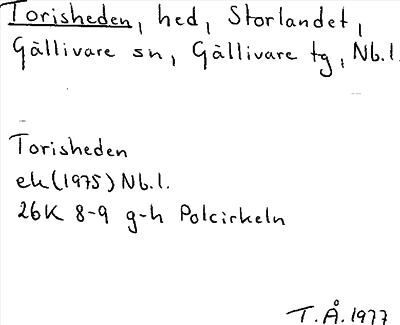 Torisheden, hed, Storlandet,
Gällivare sn, Gällivare tg, Nb.l.
Torisheden
ek (1975) Nb.l.
26K 8-9 g-h Polcirkeln
T.Å. 1977